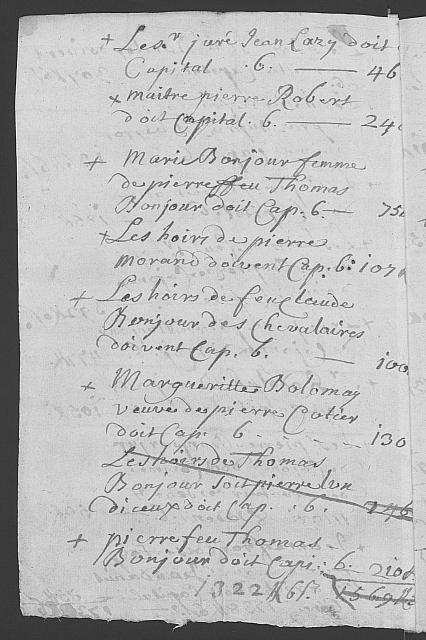 + Le s.r juré Jean Lazy doit
Capital . 6. — 46
+ maitre pierre Robert
doit Capital . 6. — 240
+ Marie Bonjour femme
de pierre feu Thomas
Bonjour doit Cap. 6 — 750
+ Les hoirs de pierre
morand doivent Cap. 6: 107
+ Les hoirs de feu Claude
Bonjour des Chevalaires
doivent Cap. 6. — 100
+ Margueritte Bolomay
veuve de pierre Cotier
doit Cap. 6 130
Les hoirs de Thomas
Bonjour soit pierre l'un
diceux doit Cap. . 6. 246
+ pierre feu Thomas
Bonjour doit Capi. 6. 210
1322 6 1569